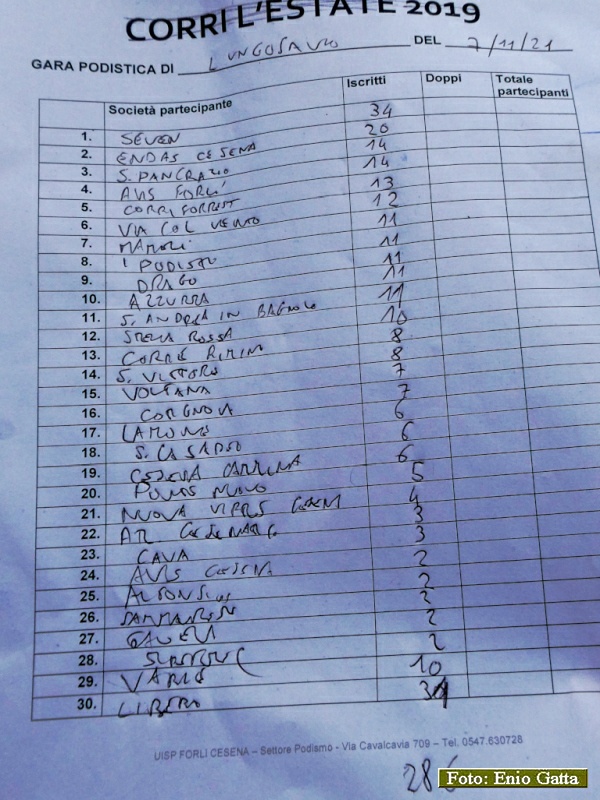 CORRI L'ESTATE 2019
GARA PODISTICA DI LUNGOSAVIO DEL 7/11/21
Società partecipante Iscritti Doppi Totale partecipanti
1. SEVEN 34
2. ENDAS CESENA 20
3. S. PANCRAZIO 14
4. AVIS FORLI' 14
5. CORRI FORREST 13
6. VIA COL VENTO 12
7. 11
8. I PODISTI 11
9. DRAGO 11
10. AZZURRA 11
11. S. ANDREA IN BAGNOLO 11
12. STELLA ROSSA 10
13. RIMINI 8
14. S. VITTORE 8
15. VOLTANA 7
16. 7
17. LAMONE 6
18. 6
19. CESENA 6
20. 5
21. NUOVA 4
22. 3
23. CAVA 3
24. AVIS CESENA 2
25. 2
26. 2
27. 2
28. 2
29. VARIE 10
30. LIBERO 31
UISP FORLI CESENA – Settore Podismo - Via Cavalcavia 709 – Tel. 0547.630728
286
Foto: Enio Gatta